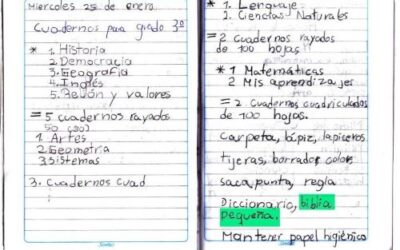 Miercoles 25 de enero
Cuadernos para grado 3º
* 1. Historia
2. Democracia
3. Geografia
4. Inglés
5. Revón y valores
= 5 cuadernos rayados
50 (90)
1 Artes
2 Geometria
3 Sistemas
3. Cuadernos Cuad
* 1. Lenguaje
2. Ciencias Naturales
= 2 cuadernos rayados
de 100 hojas
* 1 Matemáticas
2 Mis aprendizajes
= 2 cuadernos cuadriculados
de 100 hojas.
Carpeta, lápiz, lapiceros
tijeras, borrador color,
saca punta, regla
Diccionario, biblia
pequeña.
Mantener papel higiénico